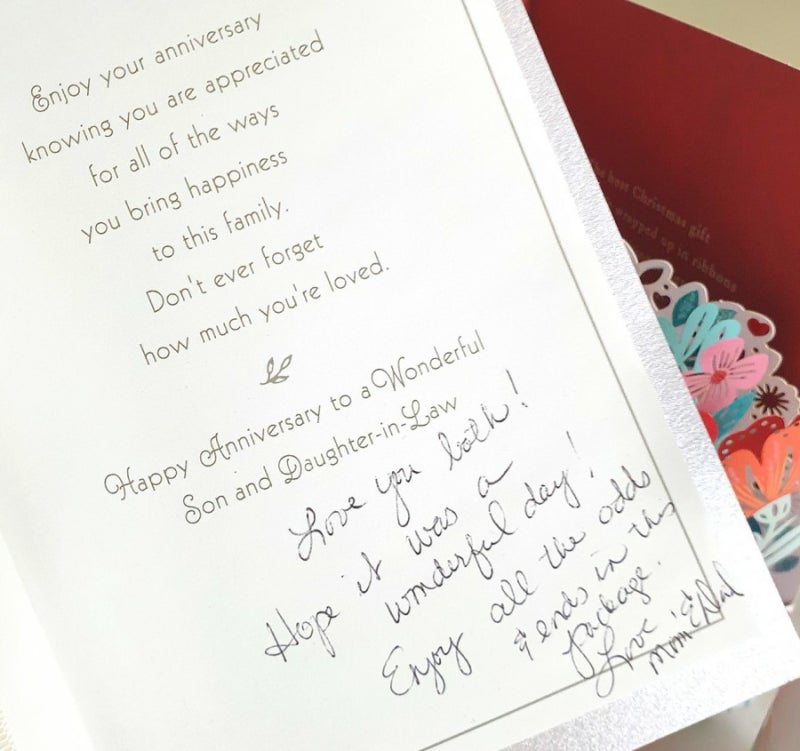 Enjoy your anniversary
knowing you are appreciated
for all of the ways
you bring happiness
to this family.
Don't ever forget
how much you're loved.
Happy Anniversary to a Wonderful
Son and Daughter-in-Law
Love you both!
Hope it was a
wonderful day!
Enjoy all the odds
& ends in this
package.
Love
Mom &
best Christmas gift
wrapped up in ribbons